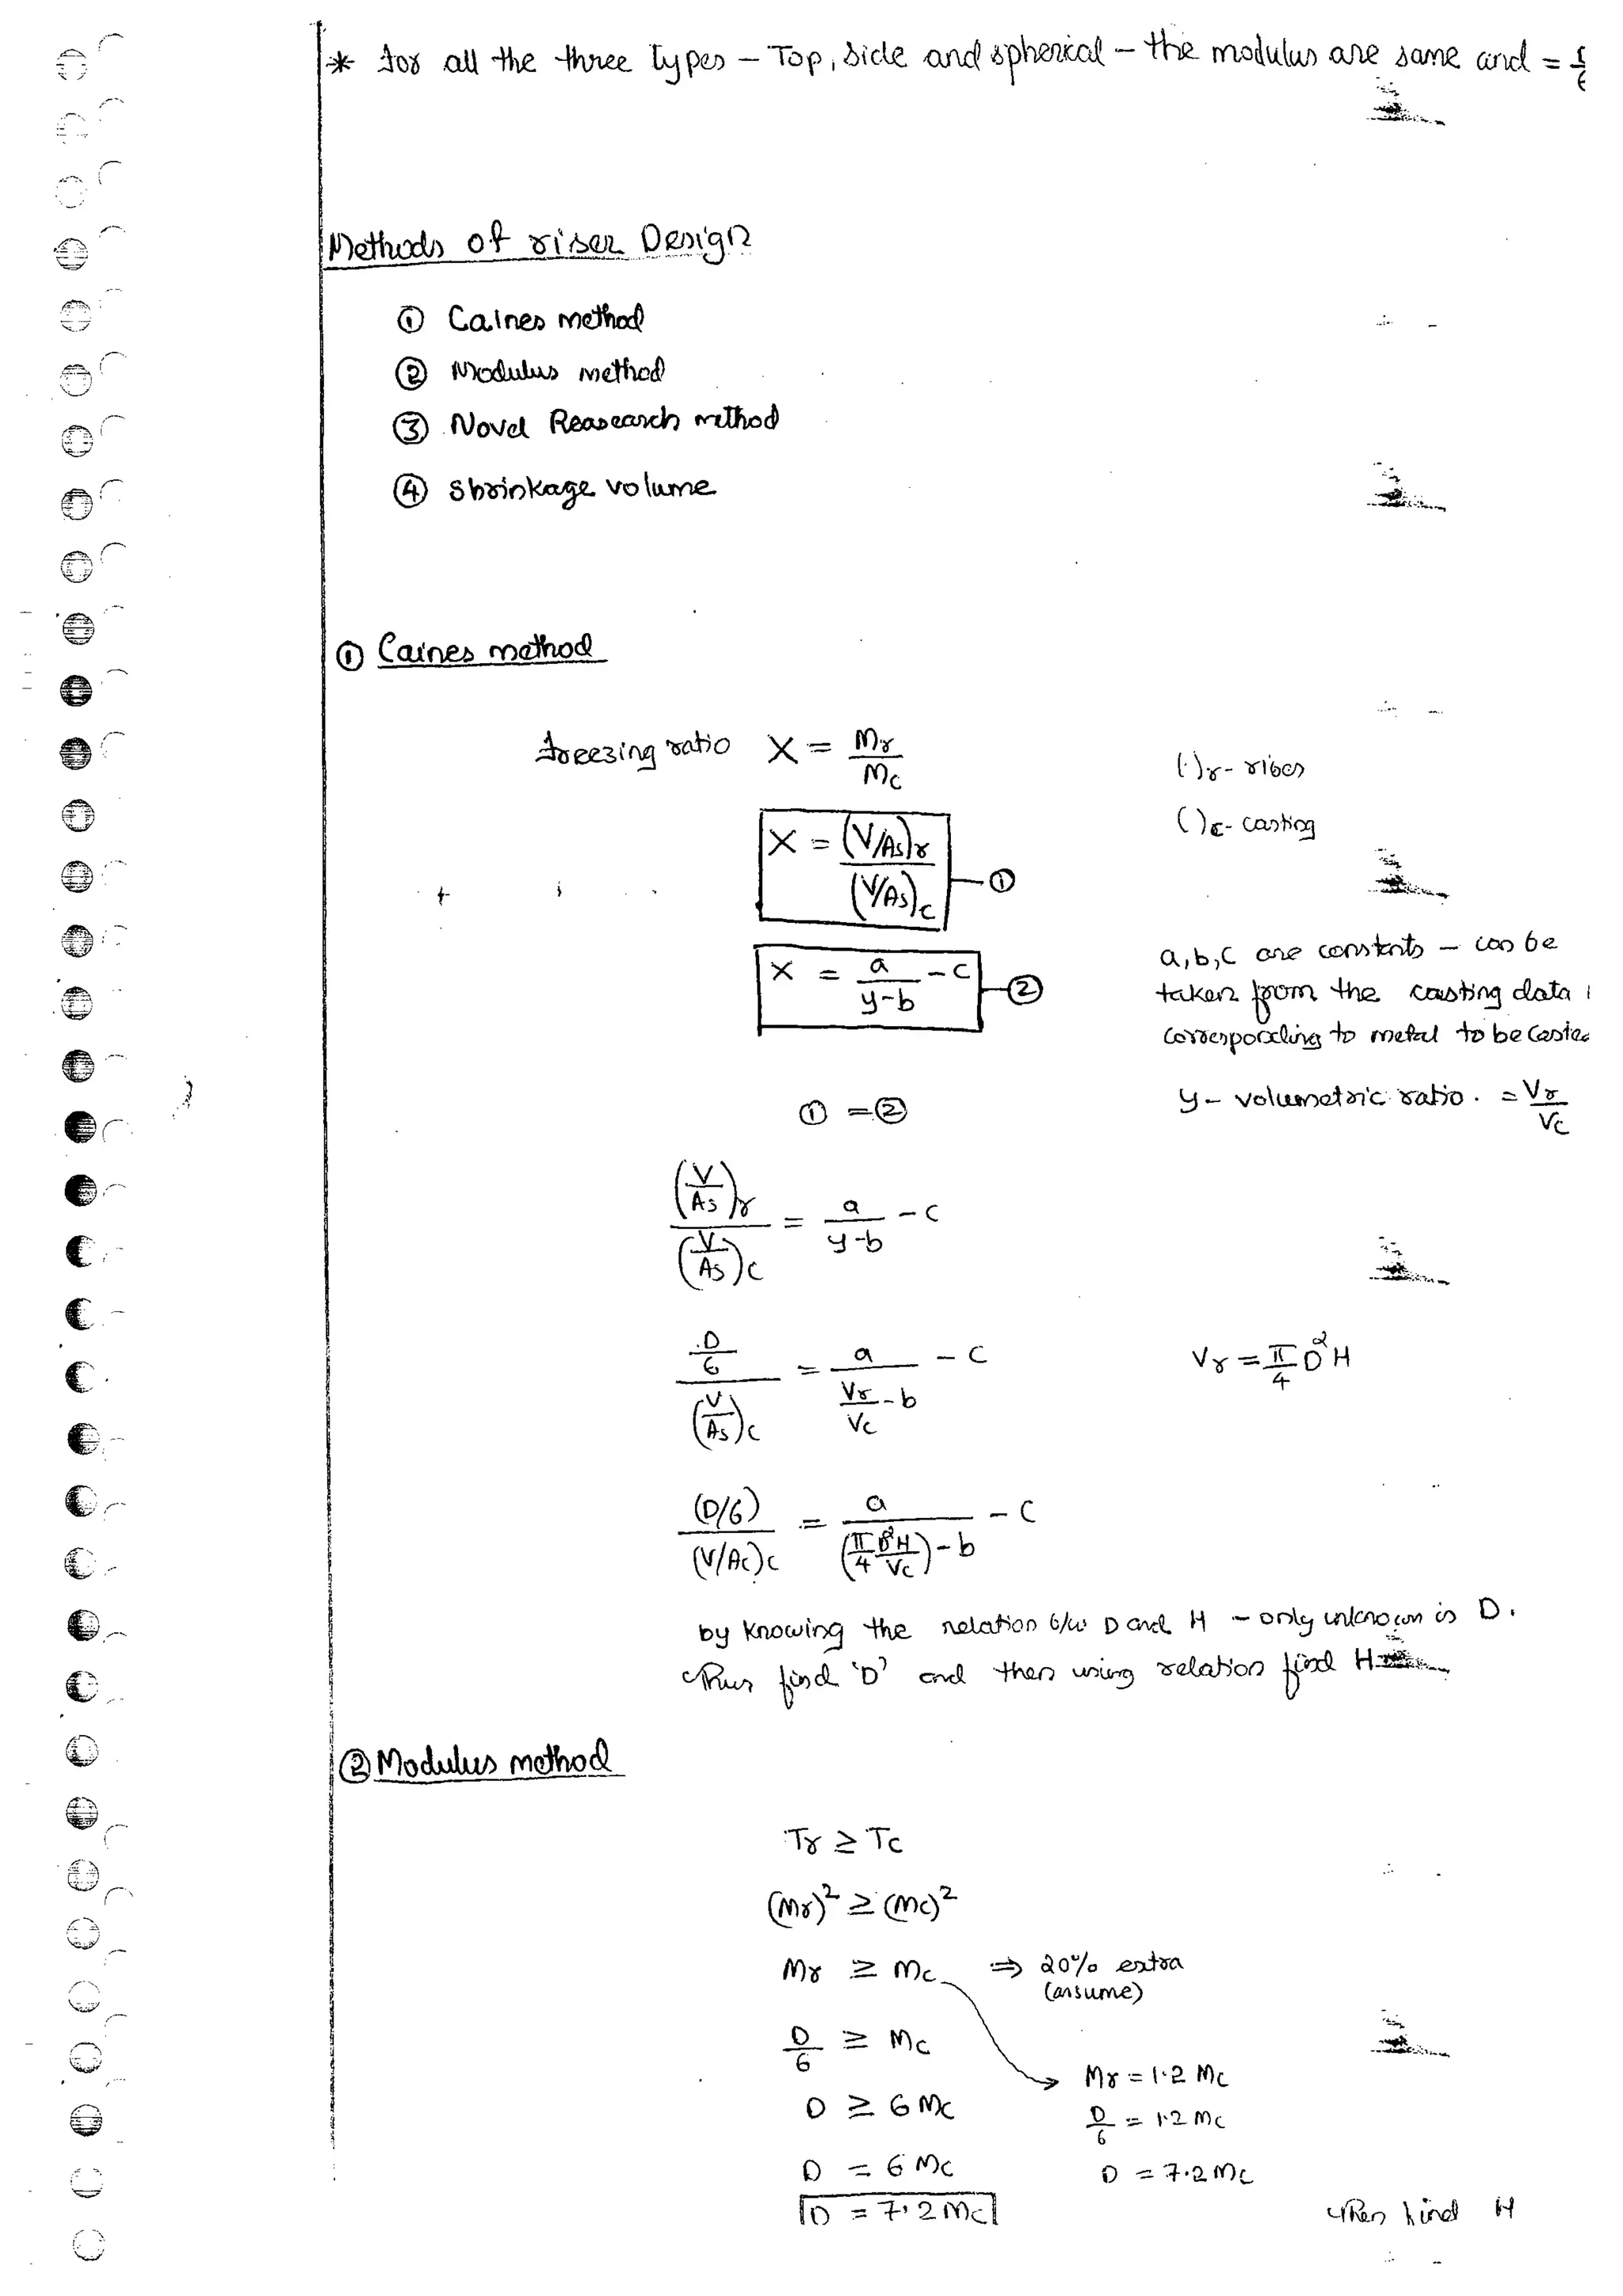 * for all the three types – Top, side and spherical – the modulus are same and =
Methods of riser Design
① Caines method
② Modulus method
③ Novel Reasearch method
④ Shrinkage volume
① Caines method
freezing ratio X = Mr/Mc
( )r - riser
X = (V/As)r / (V/As)c — ①
( )c - casting
X = a/(y-b) - c — ②
a, b, c are constants – can be
taken from the casting data
corresponding to metal to be
① = ②
y – volumetric ratio. = Vr/Vc
(V/As)r / (V/As)c = a/(y-b) - c
(D/6) / (V/As)c = a/(Vr/Vc - b) - c
Vr = π/4 D²H
(D/6) / (V/Ac)c = a/((π/4 D²H/Vc) - b) - c
by knowing the relation b/w D and H – only unknown is D.
Thus find 'D' and then using relation find H
② Modulus method
Tr ≥ Tc
(Mr)² ≥ (Mc)²
Mr ≥ Mc ⇒ 20% extra
(assume)
D/6 ≥ Mc
Mr = 1.2 Mc
D ≥ 6 Mc
D/6 = 1.2 Mc
D = 6 Mc
D = 7.2 Mc
D = 7.2 Mc
then find H